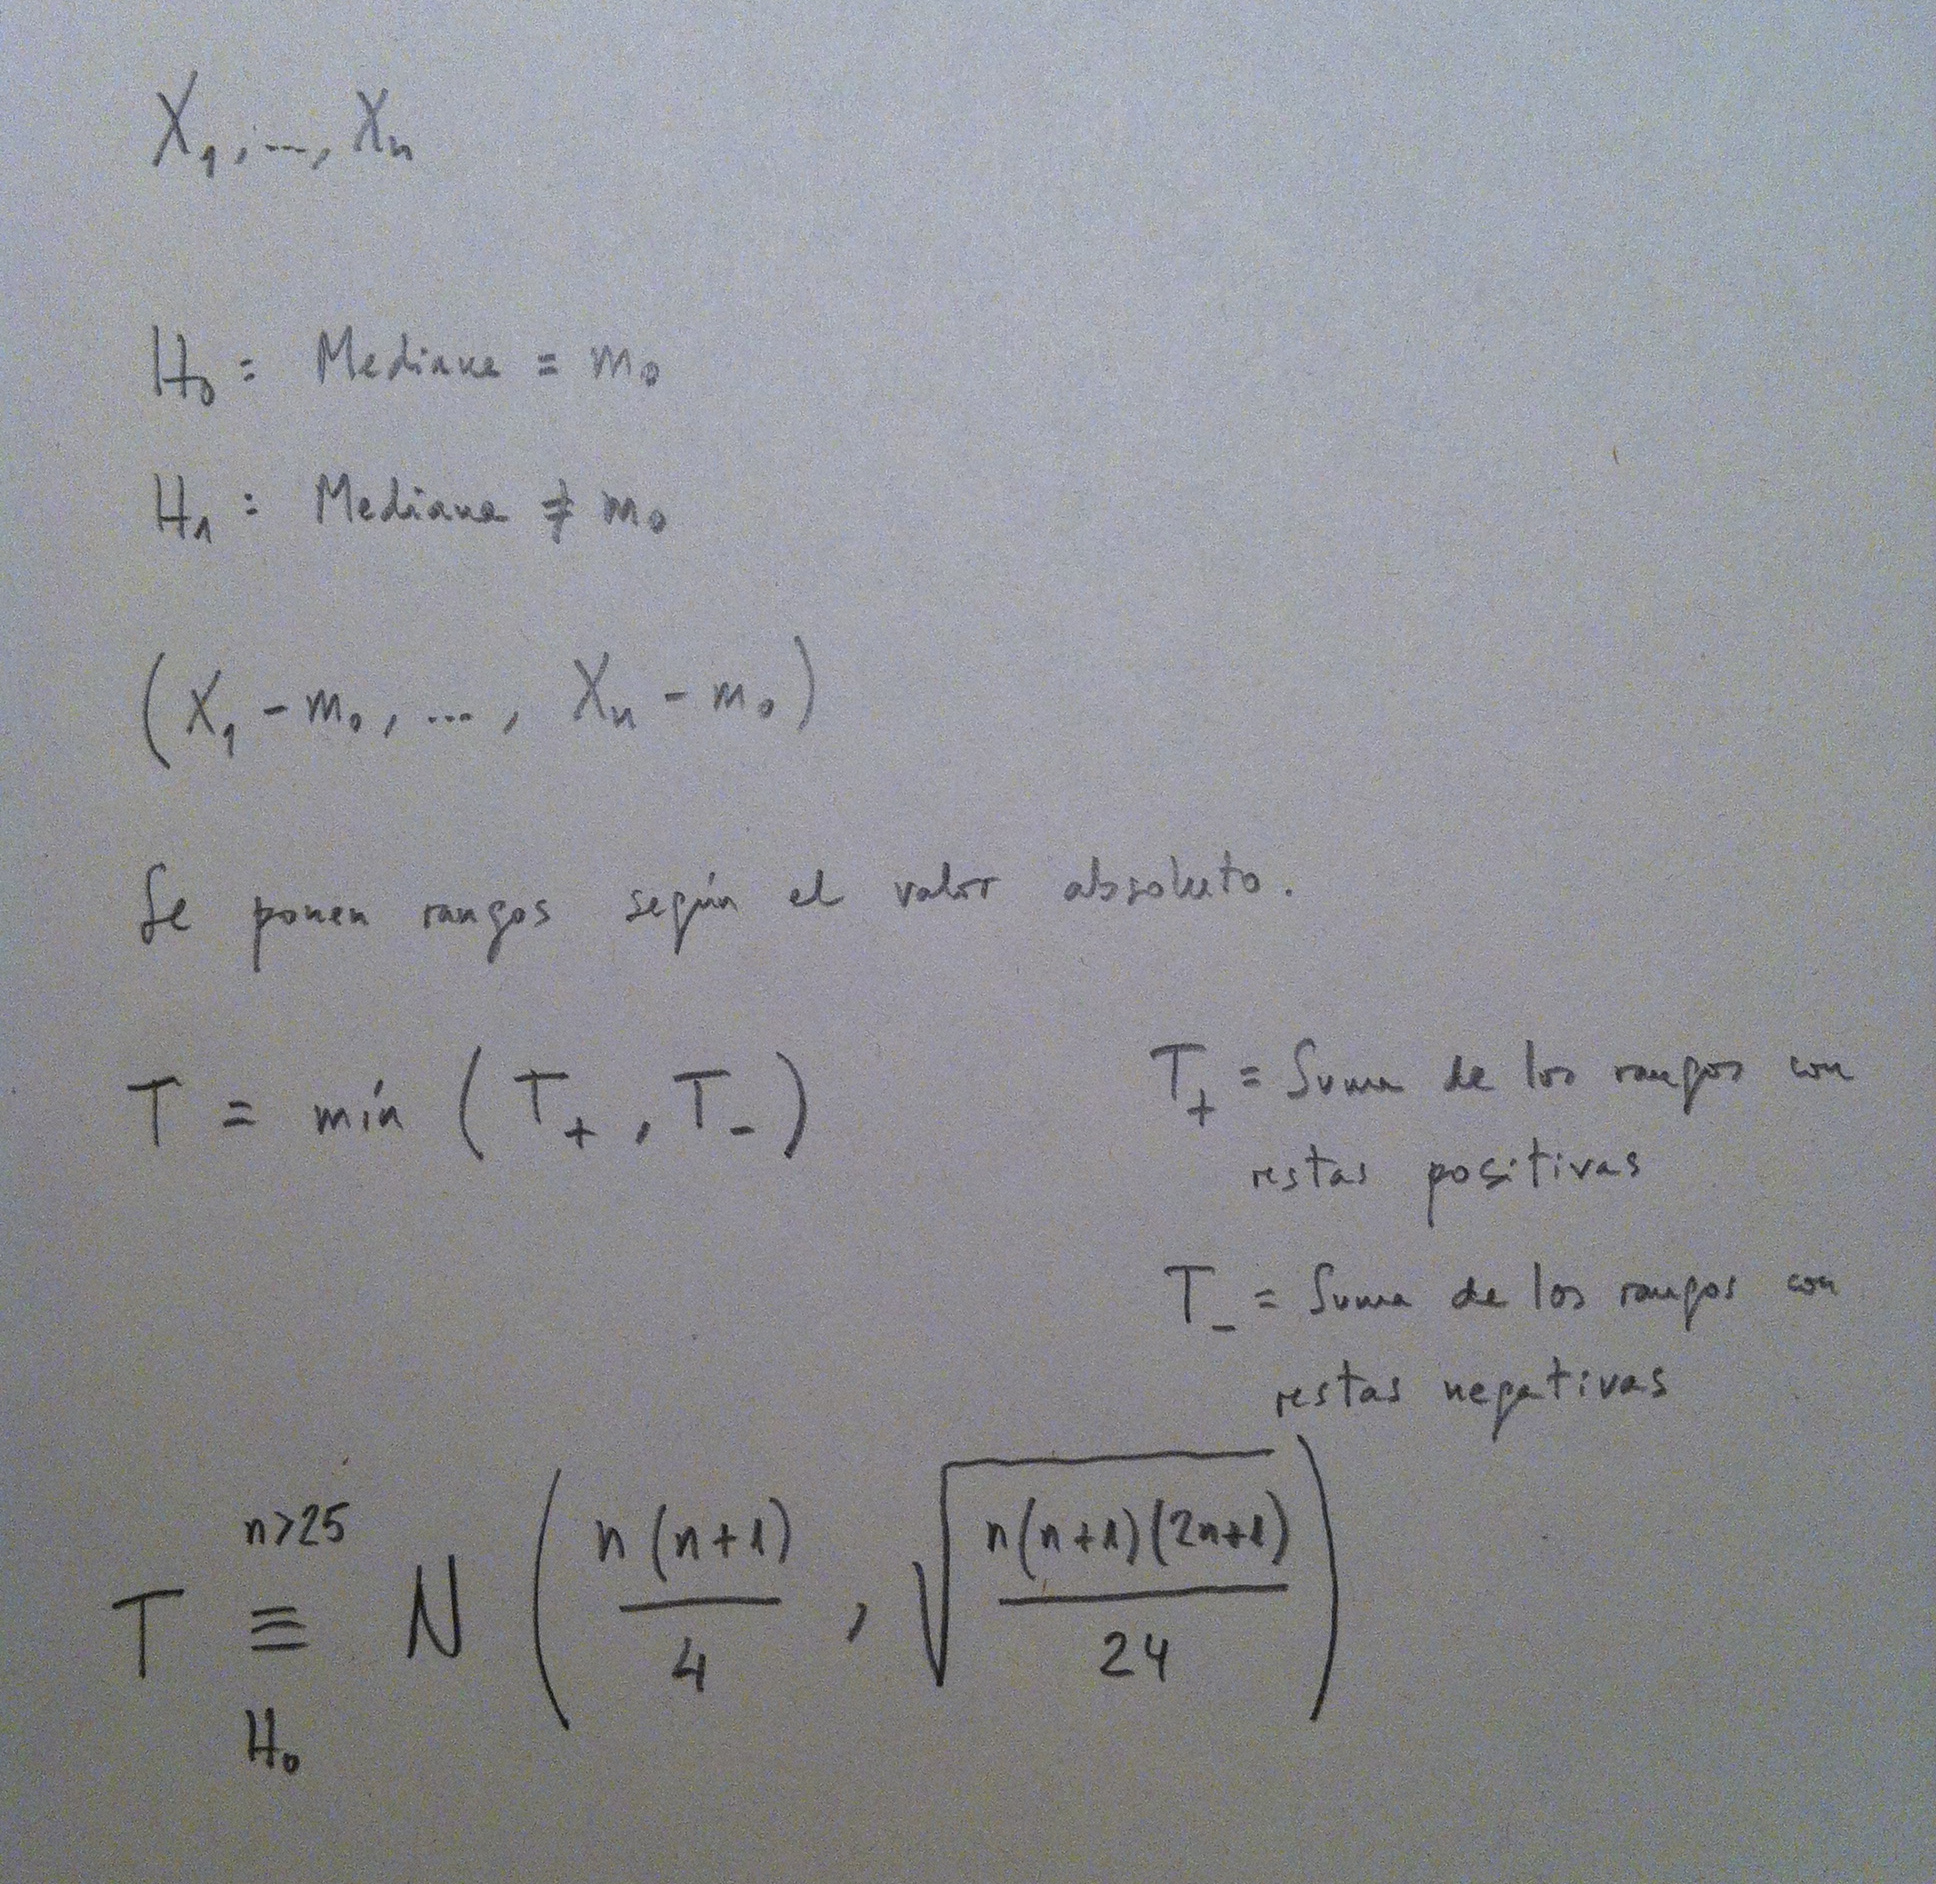 X₁, ..., Xₙ
H₀ : Mediana = m₀
H₁ : Mediana ≠ m₀
(X₁ - m₀, ..., Xₙ - m₀)
Se ponen rangos según el valor absoluto.
T = mín (T₊, T₋)
T₊ = Suma de los rangos con
restas positivas
T₋ = Suma de los rangos con
restas negativas
n>25
T ≡ N ( n(n+1)/4 , √(n(n+1)(2n+1)/24) )
H₀